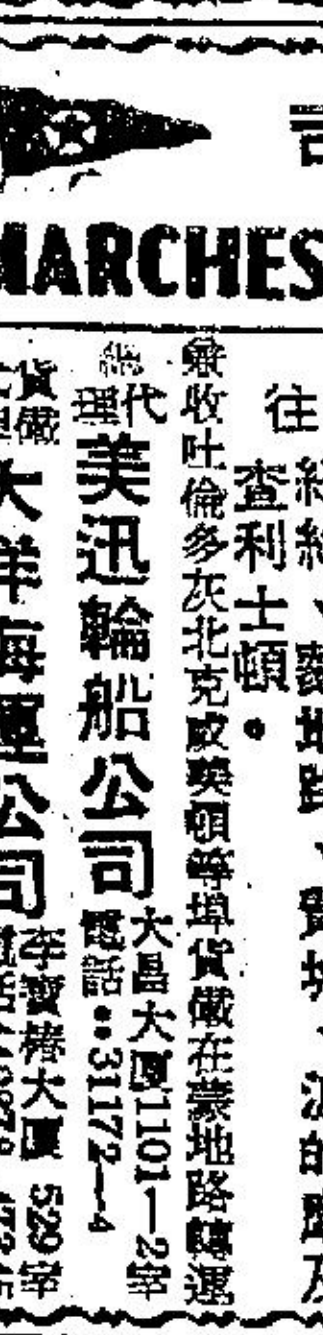 司
MARCHES
往
紐約、蒙地路、費城、波的摩及
查利士頓。
兼收吐倫多灰北克咸美頓等埠貨儎在蒙地路轉運
總代理
美迅輪船公司
大昌大厦1101—2室
電話：31172—4
貨儎
大洋海運公司
李寶椿大厦 529室
電話